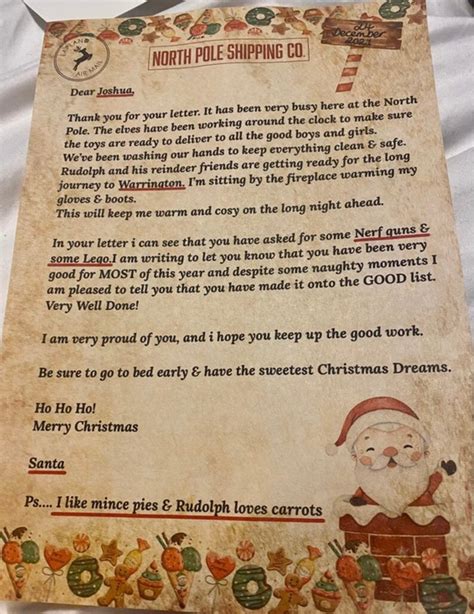 LAPLAND
AIR MAIL
NORTH POLE SHIPPING CO.
24
December
2023
Dear Joshua,
Thank you for your letter. It has been very busy here at the North
Pole. The elves have been working around the clock to make sure
the toys are ready to deliver to all the good boys and girls.
We've been washing our hands to keep everything clean & safe.
Rudolph and his reindeer friends are getting ready for the long
journey to Warrington. I'm sitting by the fireplace warming my
gloves & boots.
This will keep me warm and cosy on the long night ahead.
In your letter i can see that you have asked for some Nerf guns &
some Lego.I am writing to let you know that you have been very
good for MOST of this year and despite some naughty moments I
am pleased to tell you that you have made it onto the GOOD list.
Very Well Done!
I am very proud of you, and i hope you keep up the good work.
Be sure to go to bed early & have the sweetest Christmas Dreams.
Ho Ho Ho!
Merry Christmas
Santa
Ps.... I like mince pies & Rudolph loves carrots